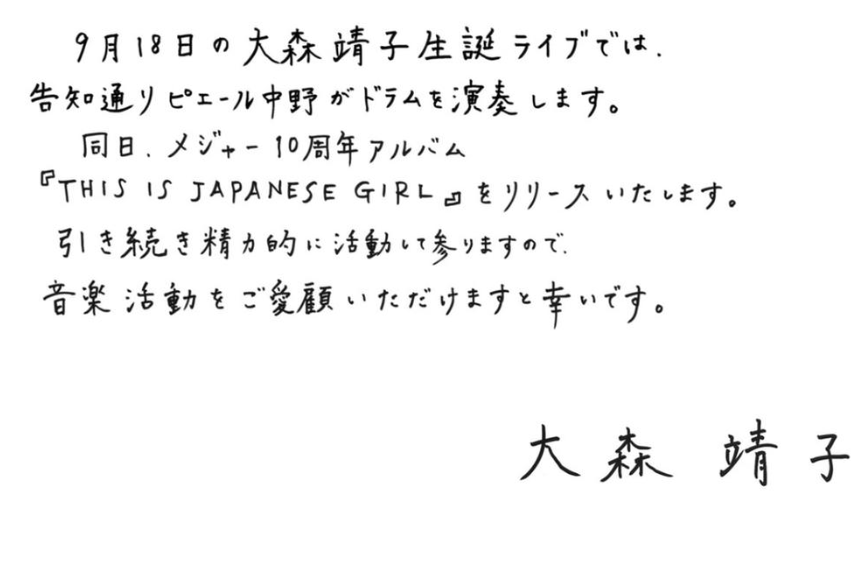 9月18日の大森靖子生誕ライブでは、
告知通りピエール中野がドラムを演奏します。
同日、メジャー10周年アルバム
『THIS IS JAPANESE GIRL』をリリースいたします。
引き続き精力的に活動して参りますので、
音楽活動をご愛顧いただけますと幸いです。
大森 靖子